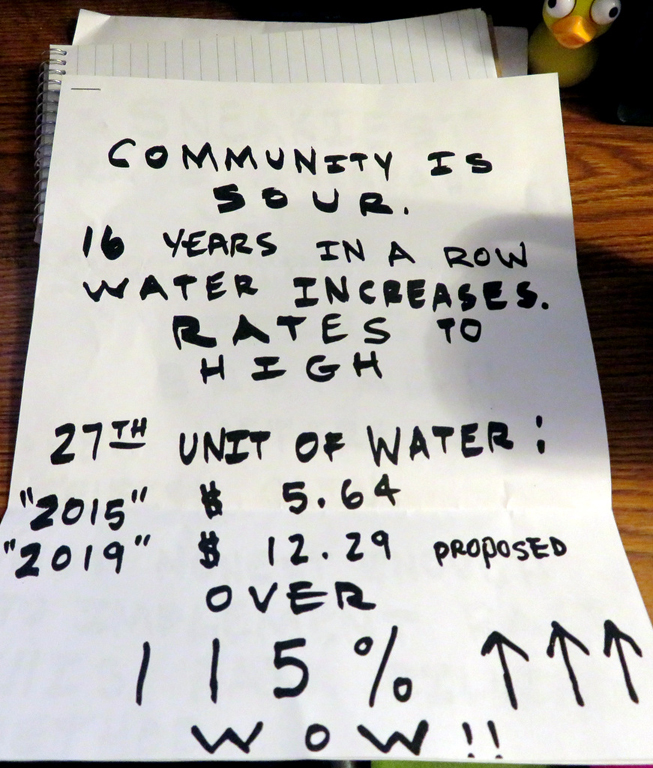 COMMUNITY IS
SOUR.
16 YEARS IN A ROW
WATER INCREASES.
RATES TO
HIGH
27TH UNIT OF WATER:
"2015" $ 5.64
"2019" $ 12.29 PROPOSED
OVER
115% ↑↑↑
WOW!!